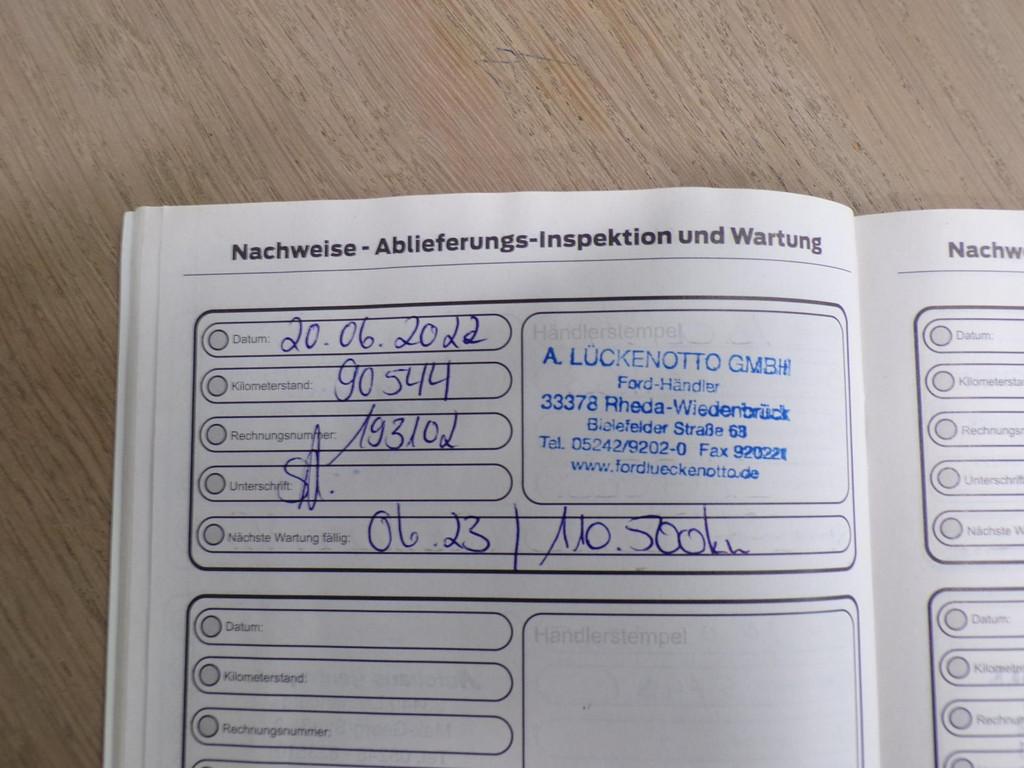 Nachweise - Ablieferungs-Inspektion und Wartung
Datum: 20.06.2022
Kilometerstand: 90544
Rechnungsnummer: 193102
Unterschrift:
Nächste Wartung fällig: 06.23 | 110.500km
Händlerstempel
A. LÜCKENOTTO GMBH
Ford-Händler
33378 Rheda-Wiedenbrück
Bielefelder Straße 63
Tel. 05242/9202-0 Fax 920221
www.fordlueckenotto.de
Datum:
Kilometerstand:
Rechnungsnummer:
Händlerstempel
Nachw
Datum:
Kilometersta
Rechnungsn
Unterschrift
Nächste W
Datum:
Kilomet
Rechnun